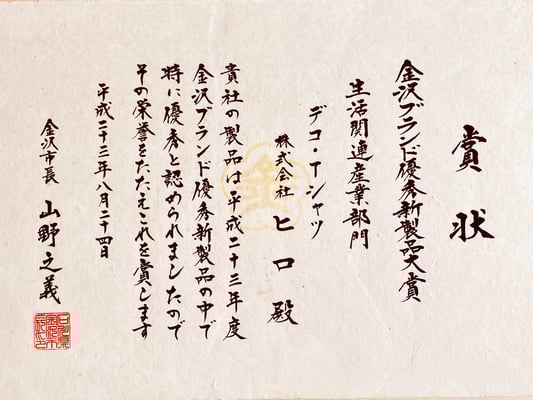 賞状
金沢ブランド優秀新製品大賞
生活関連産業部門
デコ・Tシャツ
株式会社 ヒロ 殿
貴社の製品は平成二十三年度
金沢ブランド優秀新製品の中で
特に優秀と認められましたので
その栄誉をたたえこれを賞します
平成二十三年八月二十四日
金沢市長 山野之義
金